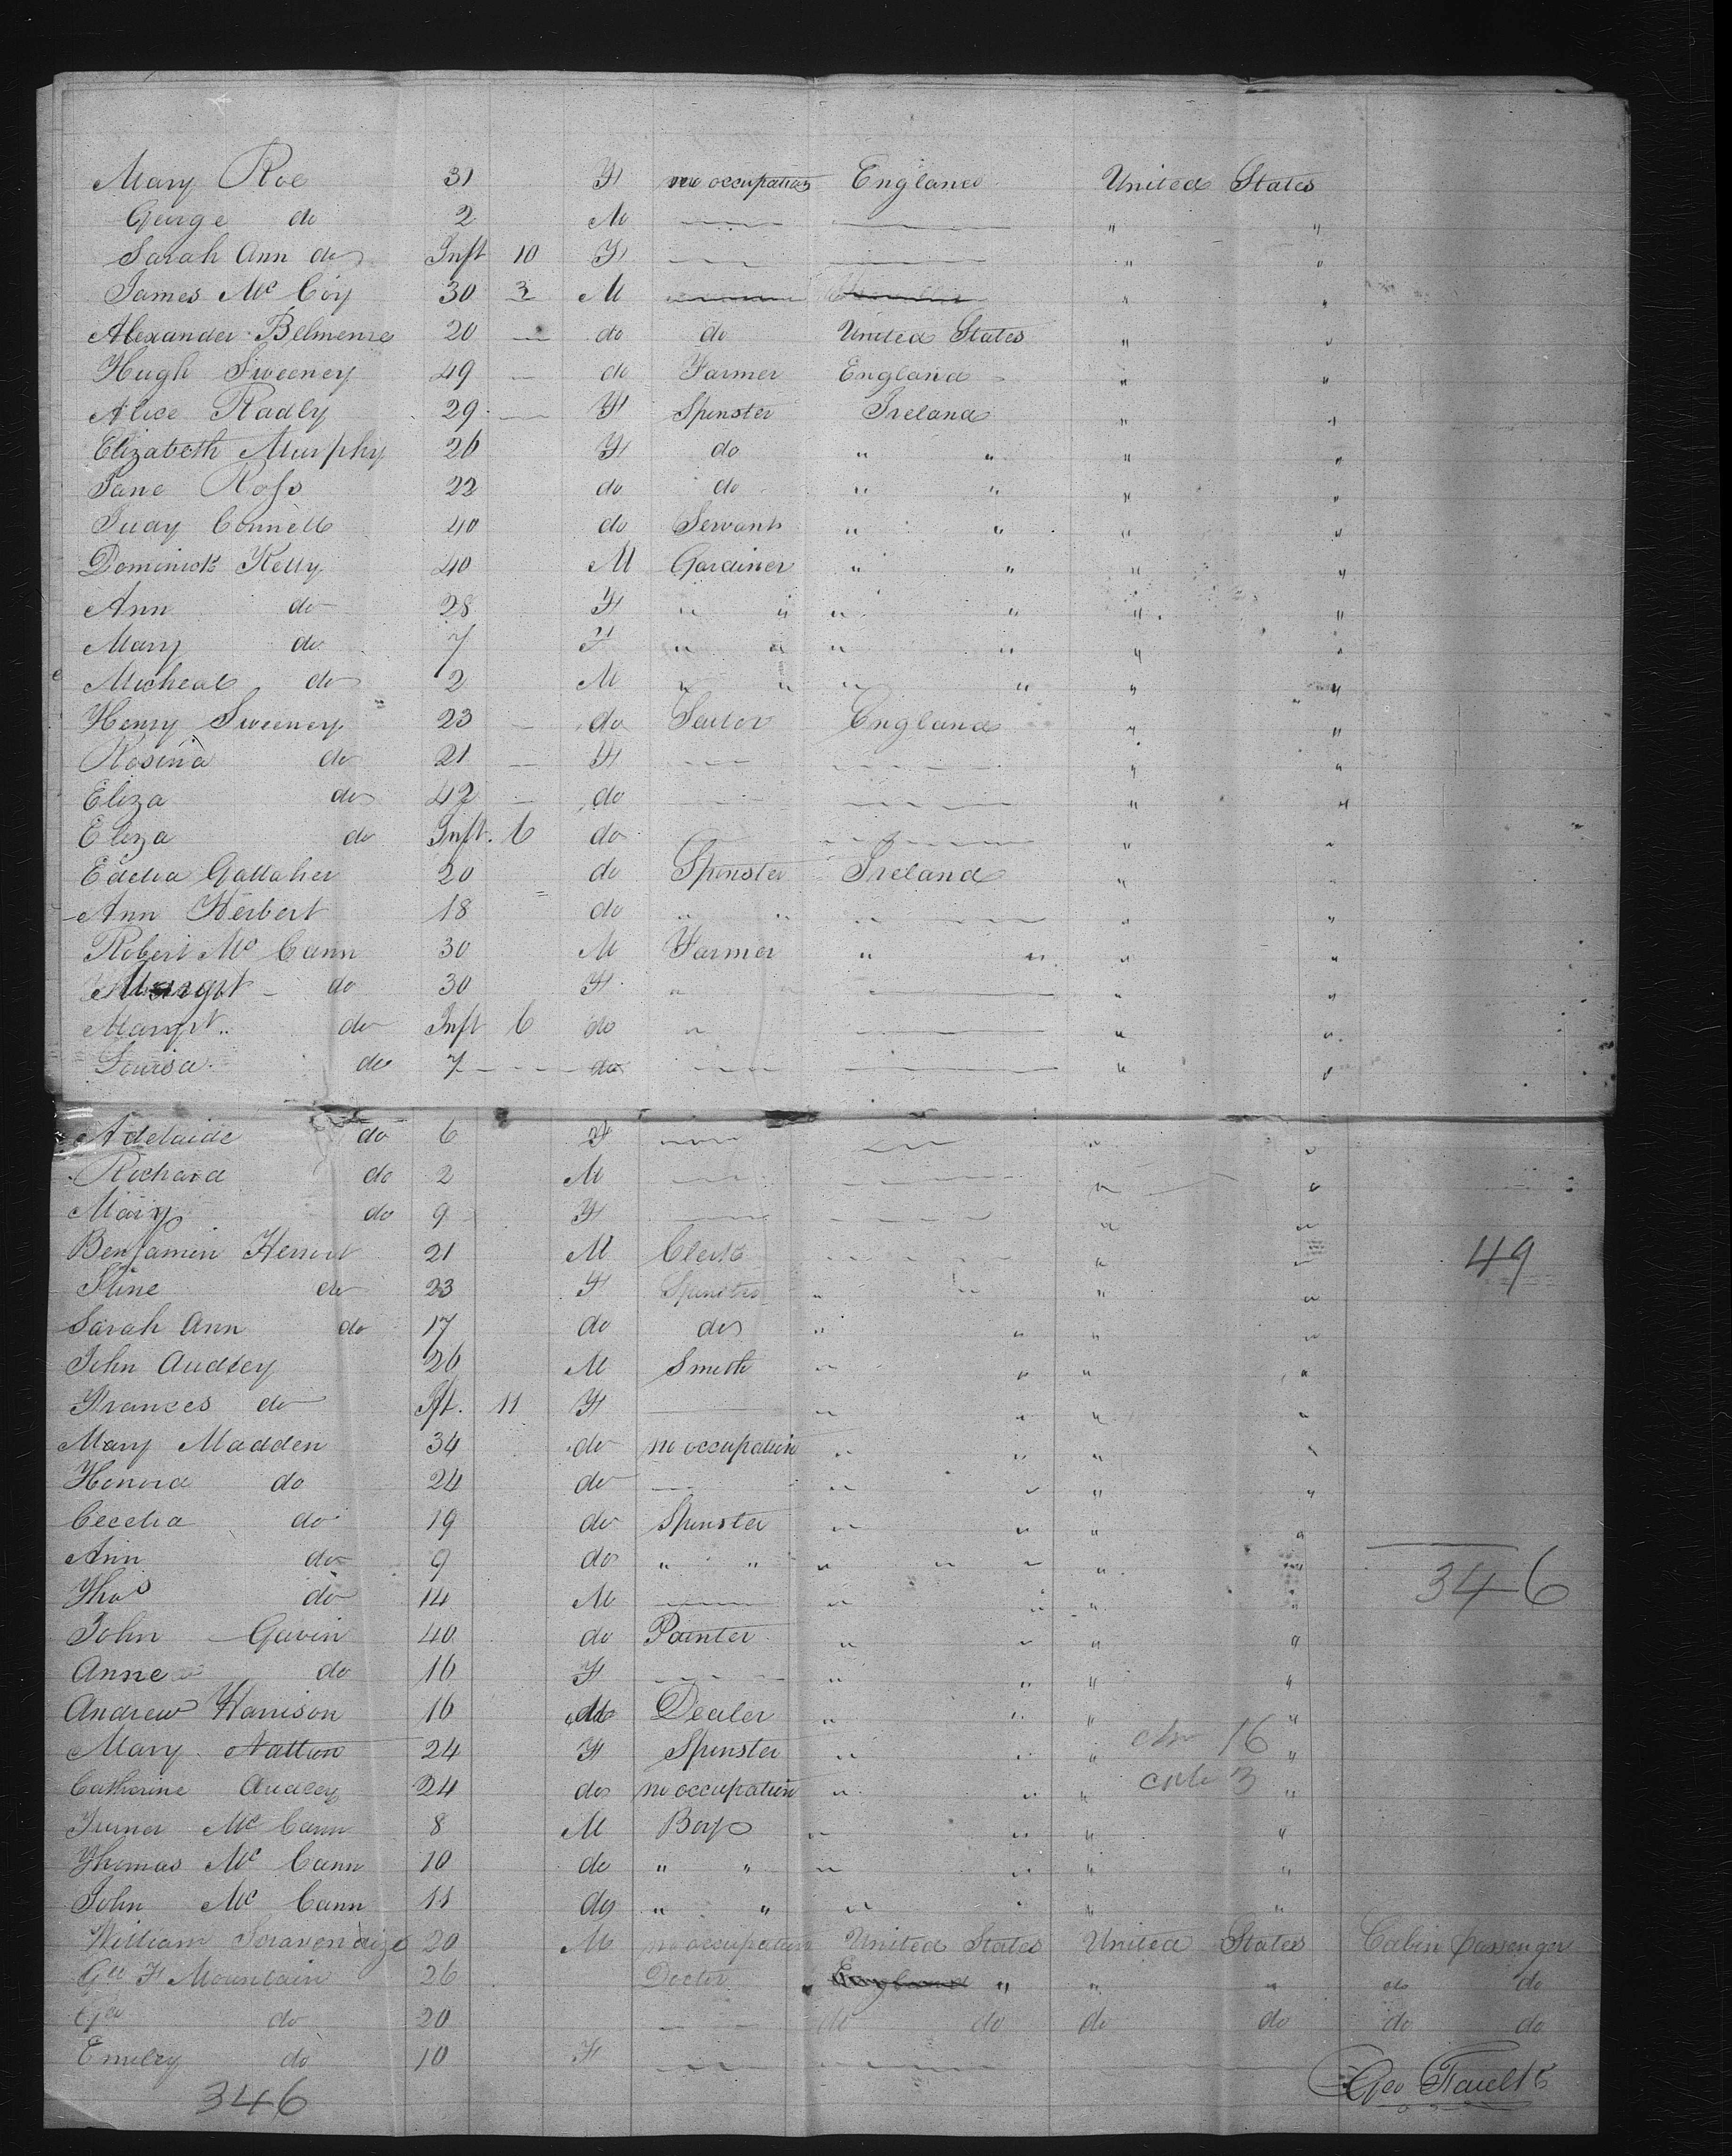 Mary Roe 31 F no occupation England United States
George do 2 M " "
Sarah Ann do Inft 10 F " "
James Mc Coy 30 3 M " "
Alexander 20 do do United States " "
Hugh Sweeney 49 do Farmer England " "
Alice Radly 29 F Spinster Ireland " "
Elizabeth Murphy 26 F do " " " "
Jane Ross 22 do do " " " "
Connell 40 do Servant " " " "
Dominick Kelly 40 M Gardiner " " " "
Ann do 28 F " " " " " "
Mary do 7 F " " " " " "
Micheal do 2 M " " " " " "
Henry Sweeney 23 do England " "
Rosina do 21 F " "
Eliza do 42 do " "
Eliza do Inft. 6 do " "
Edelia Gallaher 20 do Spinster Ireland " "
Ann Herbert 18 do " " " "
Robert Mc Cann 30 M Farmer " " " "
Margt do 30 F " " " "
Margt.. do Inft 6 do " " "
Louisa do 7 do " "
Adelaide do 6 F " "
Richard do 2 M " "
Mary do 9 F " "
Benjamin 21 M Clerk " " 49
do 23 F " " " "
Sarah Ann do 17 do do " " " "
John Audley 26 M Smith " " " "
Frances do Ift. 11 F " " " "
Mary Madden 34 do no occupation " " " "
Honora do 24 do " " " "
Cecelia do 19 do Spinster " " " "
Ann do 9 do " " " " " " "
Thos do 14 M " " " " 346
John Gavin 40 do Painter " " " "
Anne do 16 F " " " "
Andrew Harrison 16 do Dealer " " " "
Mary Natton 24 F Spinster " " " 16 "
Catherine Audley 24 do no occupation " " " 3 "
Mc Cann 8 M Boy " " " "
Thomas Mc Cann 10 do " " " " " "
John Mc Cann 11 do " " " " " "
William 20 M no occupation United States United States Cabin passenger
F Mountain 26 Doctor England " " " do do
do 20 do do do do do do
Emiley do 10 F
346 Geo